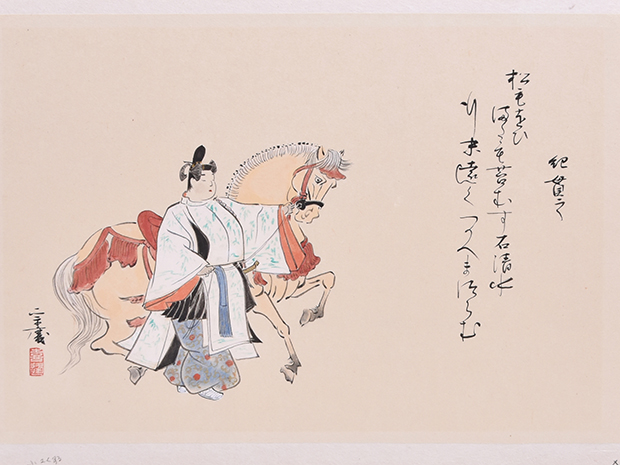 紀貫之
松もをひ
またも苔むす石清水
行末遠くつかへまつらむ